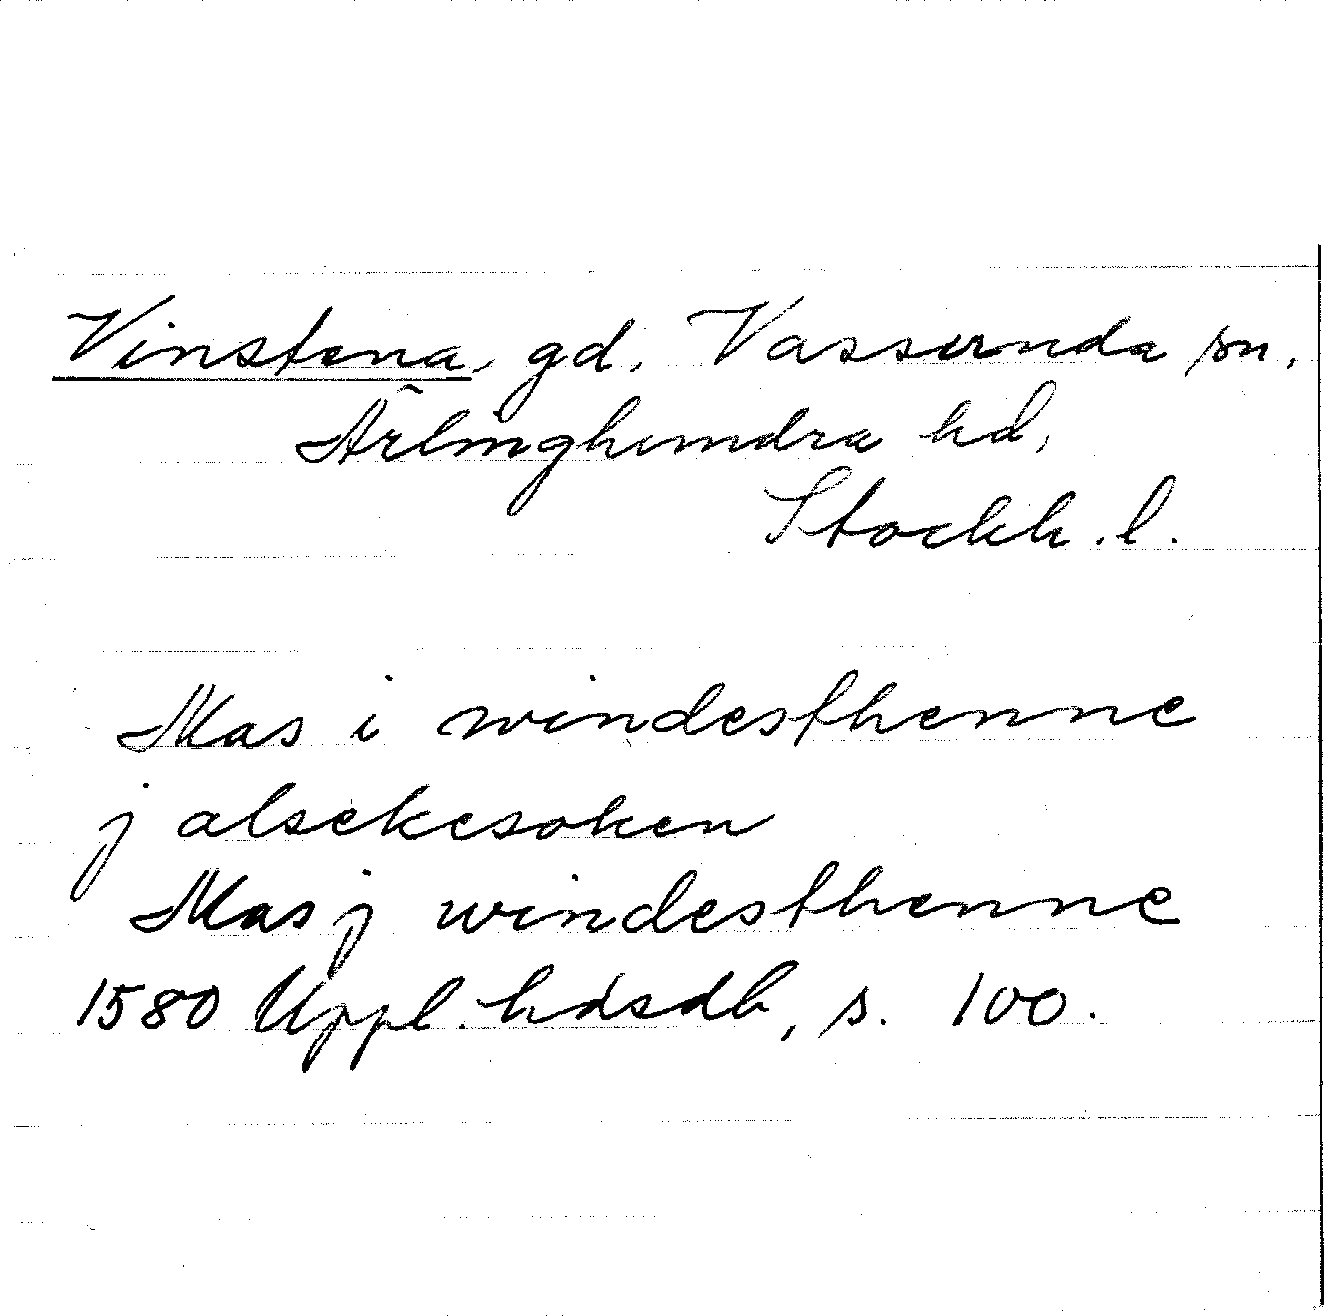 Vinstena, gd, Vassunda sn,
Ärlinghundra hd,
Stockh. l.
Mas i windesthenne
j alsekesoken
Mas j windesthenne
1580 Uppl. hdsdb, s. 100.